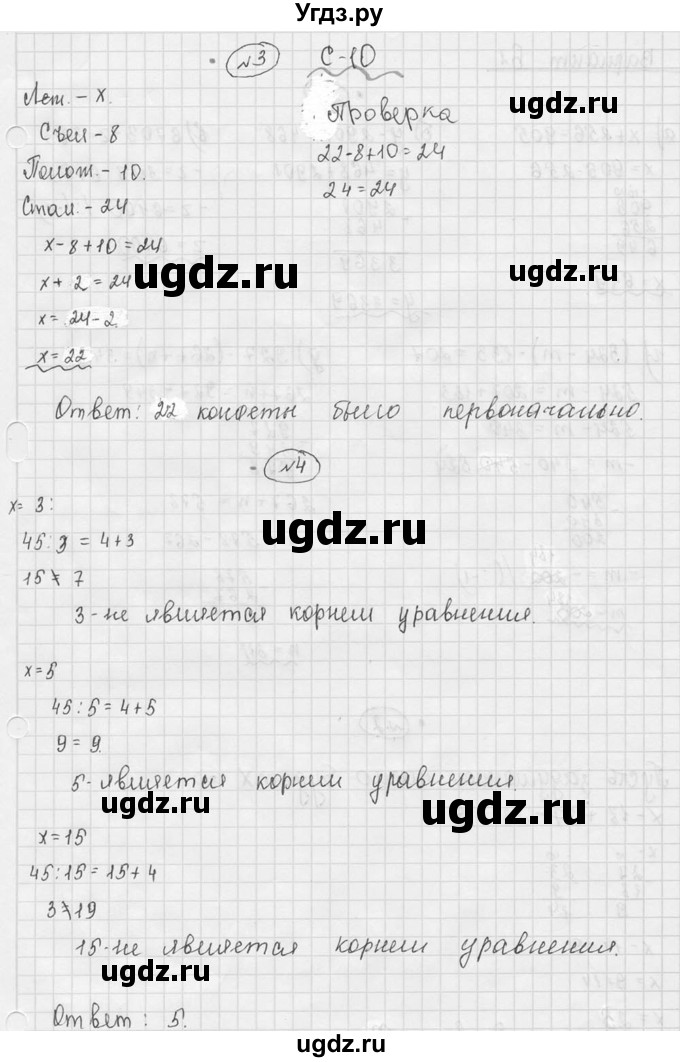 Угдз.ру
№3 С-10
Лет. - х.
Съел - 8
Полож. - 10.
Стал. - 24
х - 8 + 10 = 24
х + 2 = 24
х = 24 - 2
х = 22
Проверка
22 - 8 + 10 = 24
24 = 24
ugdz.ru
ugdz.ru
Ответ: 22 конфеты было первоначально.
№4
х = 3:
45 : 3 = 4 + 3
15 ≠ 7
ugdz.ru
ugdz.ru
3 - не является корнем уравнения.
х = 5
45 : 5 = 4 + 5
9 = 9.
5 - является корнем уравнения.
ugdz.ru
ugdz.ru
х = 15
45 : 15 = 15 + 4
3 ≠ 19
15 - не является корнем уравнения.
ugdz.ru
ugdz.ru
Ответ: 5.
Угдз.ру